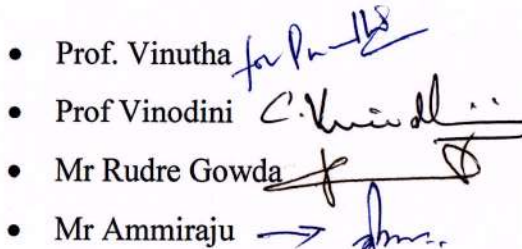 • Prof. Vinutha for
• Prof Vinodini C. Vinodh
• Mr Rudre Gowda
• Mr Ammiraju